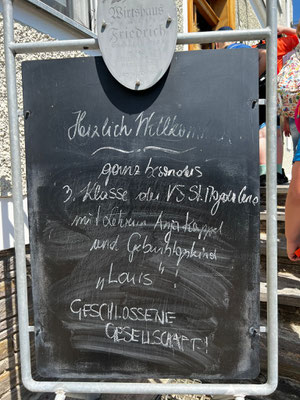 Wirtshaus
Friedrich
Herzlich Willkomm
ganz besonders
3. Klasse der VS St. Magdalena
mit Lehrerin Anja Kappel
und Geburtstagskind
„Louis“!
GESCHLOSSENE
GESELLSCHAFT!